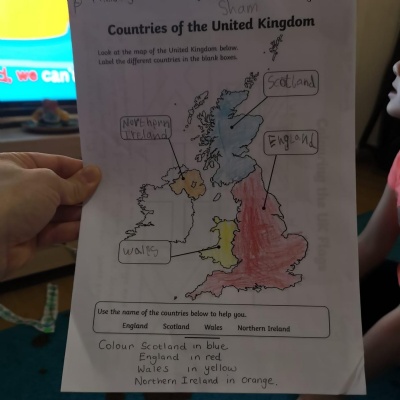 Sham
Countries of the United Kingdom
Look at the map of the United Kingdom below.
Label the different countries in the blank boxes.
we can
Scotland
Northern
Ireland
England
Wales
Use the name of the countries below to help you.
England Scotland Wales Northern Ireland
Colour Scotland in blue
England in red
Wales in yellow
Northern Ireland in orange.